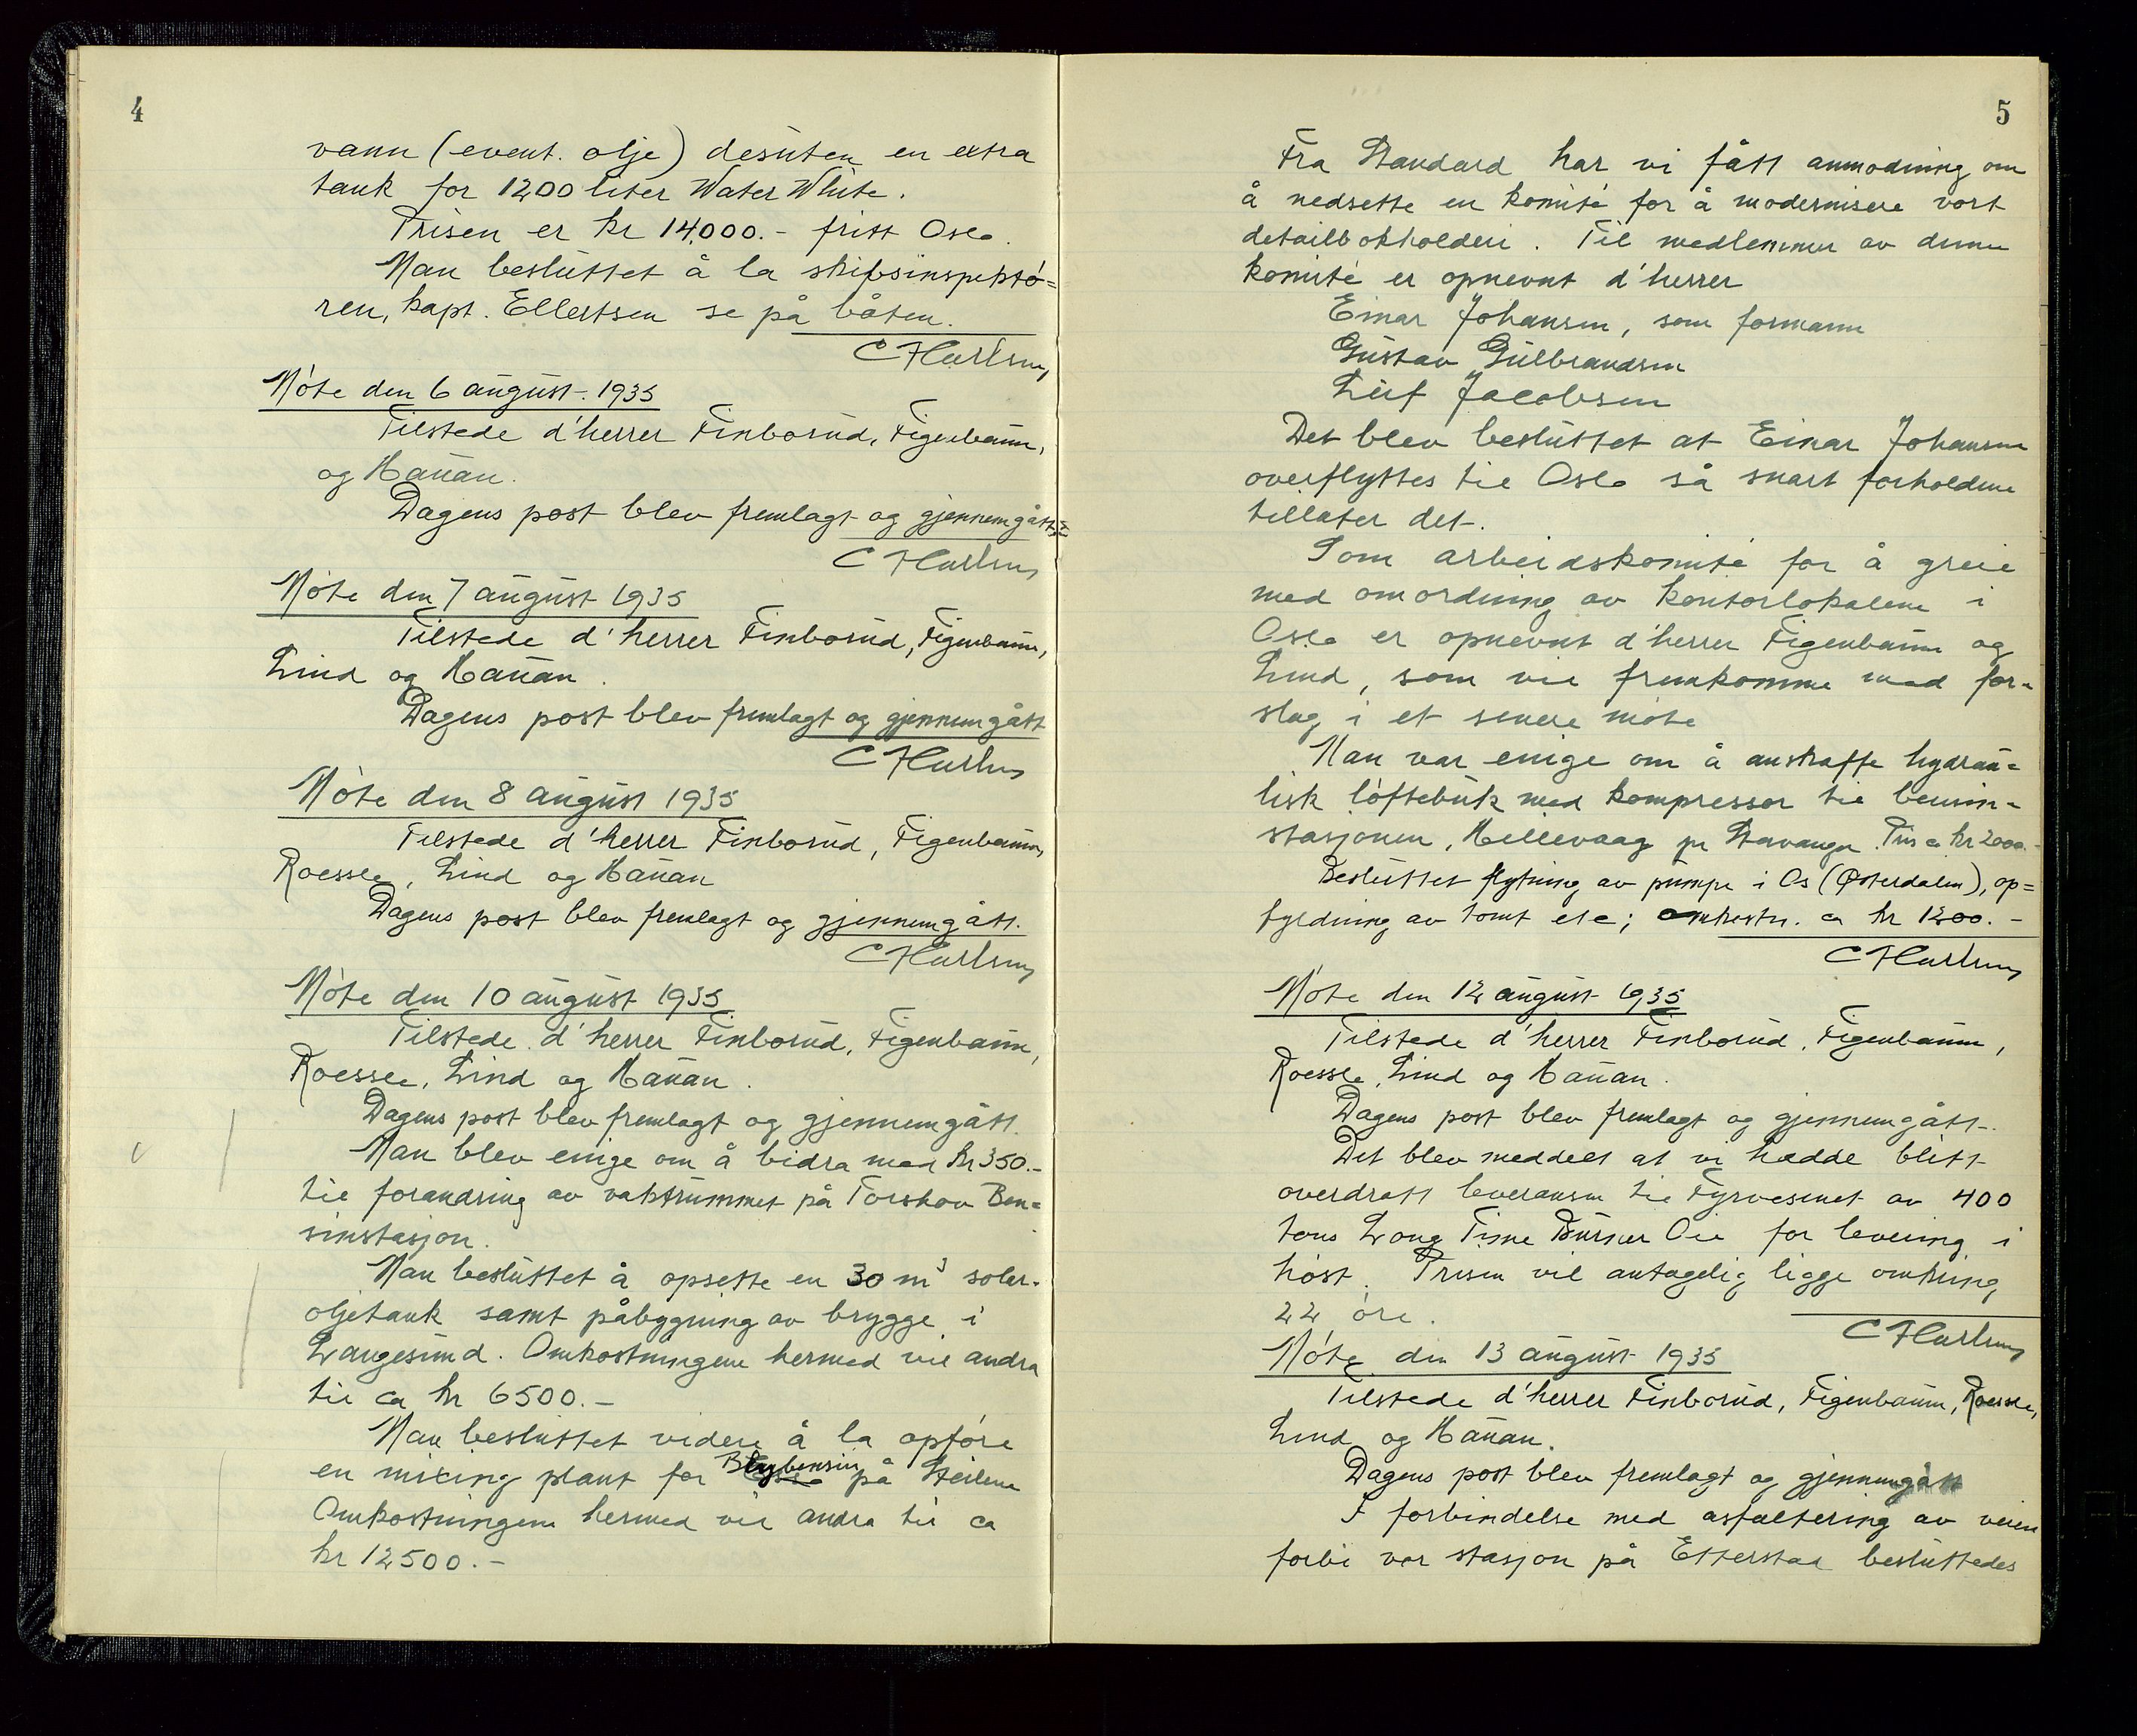 4
vann (event. olje) desuten en extra
tank for 1200 liter Water White.
Prisen er kr 14.000.- fritt Oslo.
Man besluttet å la skibsinspektø=
ren, kapt. Ellertsen se på båten.
Møte den 6 august. 1935
Tilstede d'herrer Finborud, Figenbaum,
og Hauan.
Dagens post blev fremlagt og gjennemgått.
Møte den 7 august 1935
Tilstede d'herrer Finborud, Figenbaum,
Lind og Hauan.
Dagens post blev fremlagt og gjennemgått
Møte den 8 august 1935
Tilstede d'herrer Finborud, Figenbaum,
Roessle, Lind og Hauan
Dagens post blev fremlagt og gjennemgått.
Møte den 10 august 1935
Tilstede d'herrer Finborud, Figenbaum,
Roessle, Lind og Hauan.
Dagens post blev fremlagt og gjennemgått.
Man blev enige om å bidra med kr 350.-
til forandring av vaktrummet på Torshov Ben=
sinstasjon.
Man besluttet å opsette en 30 m³ solar-
oljetank samt påbygning av brygge i
Langesund. Omkostningene hermed vil andra
til ca kr 6500.-
Man besluttet videre å la opføre
en mixing plant for Blybensin på Steilene
Omkostningene hermed vil andra til ca
kr 12500.-
5
Fra Standard har vi fått anmodning om
å nedsette en komité for å modernisere vort
detailbokholderi. Til medlemmer av denne
komité er opnevnt d'herrer
Einar Johansen, som formann
Gustav Gulbrandsen
Leif Jacobsen
Det blev besluttet at Einar Johansen
overflyttes til Oslo så snart forholdene
tillater det.
Som arbeidskomité for å greie
med omordning av kontorlokalene i
Oslo er opnevnt d'herrer Figenbaum og
Lind, som vil fremkomme med for-
slag i et senere møte
Man var enige om å anskaffe hydrau=
lisk løftebukk med kompressor til bensin-
stasjonen, Hillevaag pr Stavanger. Pris ca kr 2000.-
Besluttet flytning av pumpe i Os (Østerdalen), op=
fyldning av tomt etc; omkostn. ca kr 1200.-
Møte den 12 august 1935
Tilstede d'herrer Finborud, Figenbaum,
Roessle, Lind og Hauan.
Dagens post blev fremlagt og gjennemgått.
Det blev meddelt at vi hadde blitt
overdratt leveransen til Fyrvesenet av 400
tons Long Time Burner Oil for levering i
høst. Prisen vil antagelig ligge omkring
22 øre.
Møte den 13 august 1935
Tilstede d'herrer Finborud, Figenbaum, Roessle,
Lind og Hauan.
Dagens post blev fremlagt og gjennemgått
I forbindelse med asfaltering av veien
forbi vor stasjon på Etterstad besluttedes